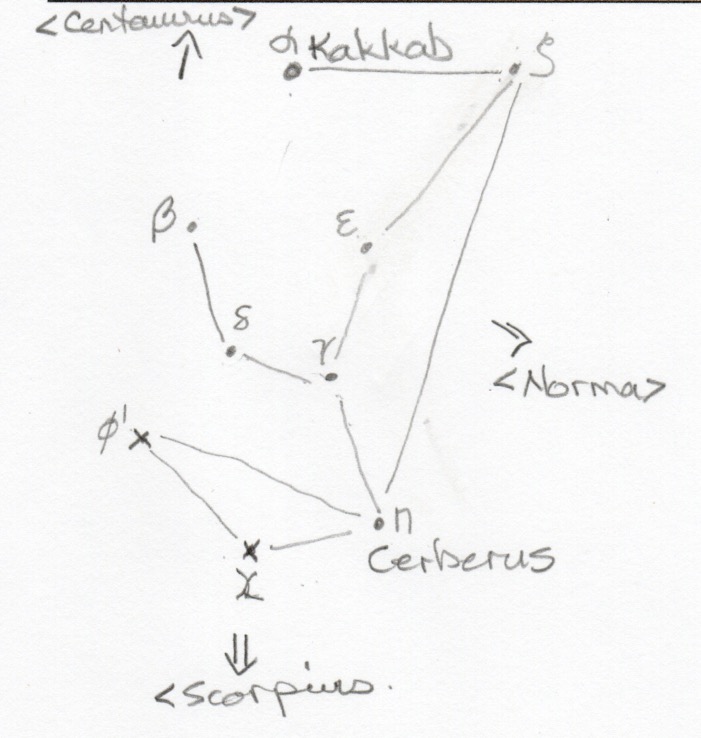 <Centaurus>
α Kakkab
ζ
β
ε
δ
γ
<Norma>
φ'
η
Cerberus
χ
<Scorpius.